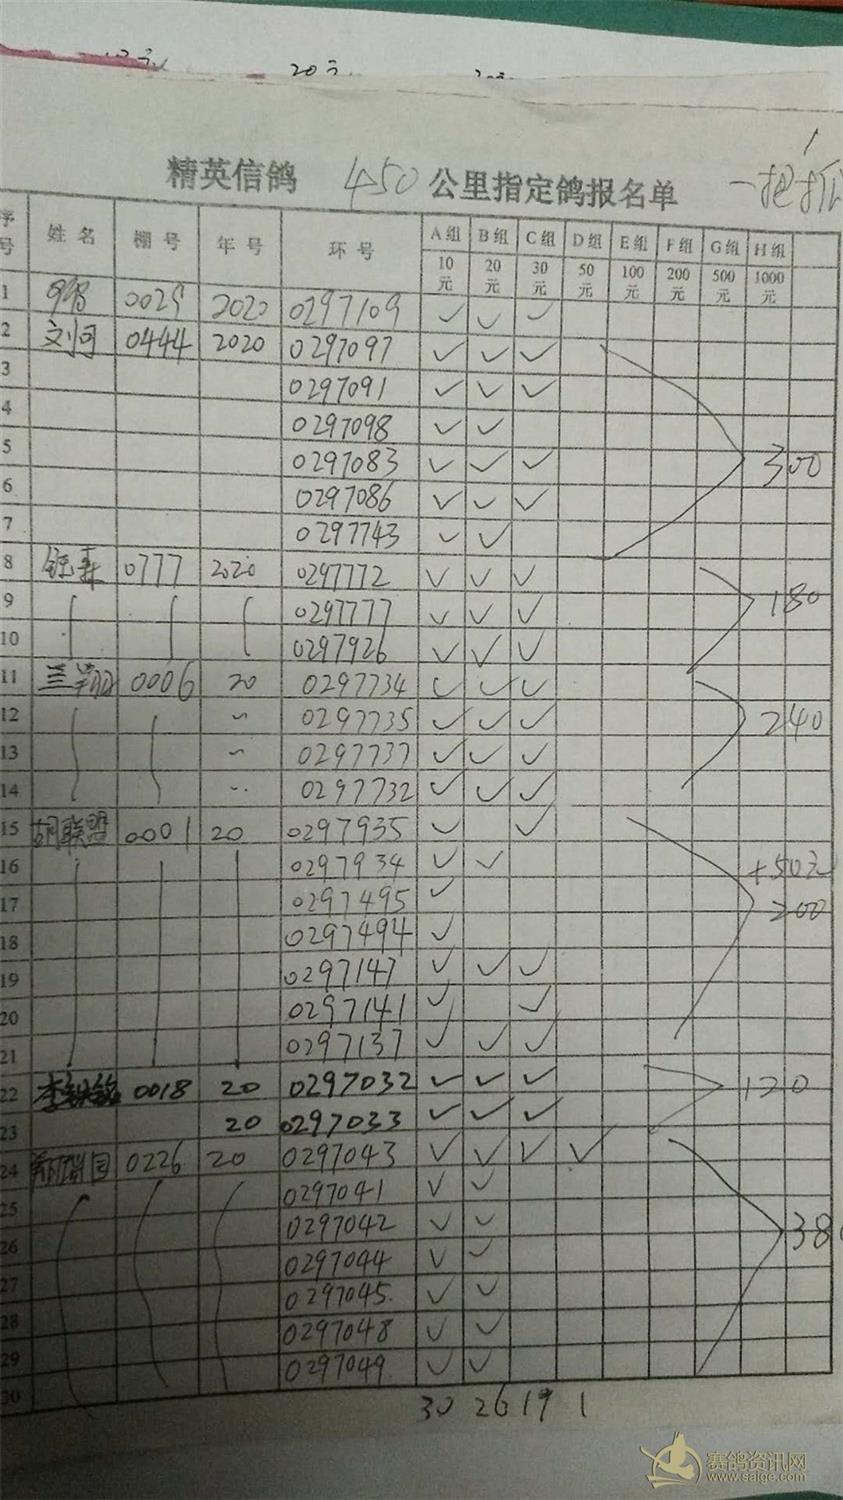 20元
精英信鸽 450 公里指定鸽报名单
序号 姓名 棚号 年号 环号 A组 B组 C组 D组 E组 F组 G组 H组
10元 20元 30元 50元 100元 200元 500元 1000元
1 998 0025 2020 0297109 ✓ ✓ ✓
2 0444 2020 0297097 ✓ ✓ ✓
3 0297091 ✓ ✓ ✓
4 0297098 ✓ ✓
5 0297083 ✓ ✓ ✓ 300
6 0297086 ✓ ✓ ✓
7 0297743 ✓ ✓
8 0777 2020 0297772 ✓ ✓ ✓
9 0297777 ✓ ✓ ✓ 180
10 0297926 ✓ ✓ ✓
11 兰翔 0006 20 0297734 ✓ ✓ ✓
12 0297735 ✓ ✓ ✓ 240
13 0297737 ✓ ✓ ✓
14 0297732 ✓ ✓ ✓
15 胡联盟 0001 20 0297935 ✓ ✓
16 0297934 ✓ ✓ +50元
17 0297495 ✓ 200
18 0297494 ✓
19 0297147 ✓ ✓ ✓
20 0297141 ✓ ✓
21 0297137 ✓ ✓ ✓
22 0018 20 0297032 ✓ ✓ ✓ 120
23 20 0297033 ✓ ✓ ✓
24 0226 20 0297043 ✓ ✓ ✓ ✓
25 0297041 ✓ ✓
26 0297042 ✓ ✓ 380
27 0297044 ✓ ✓
28 0297045 ✓ ✓
29 0297048 ✓ ✓
30 0297049 ✓ ✓
30 26 19 1
赛鸽资讯网
www.saige.com